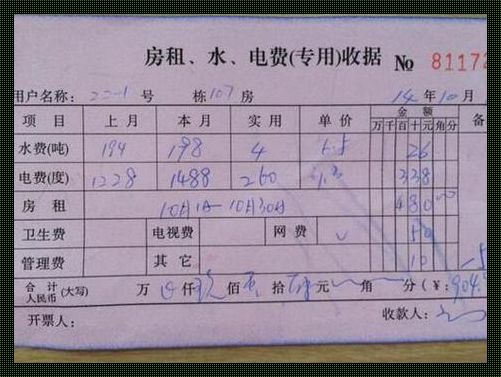 房租、水、电费(专用)收据 № 81172
用户名称: 号 栋107房 14年10月
项 目 上 月 本 月 实 用 单 价 金 额 备
万千百十元角分
水费(吨) 194 198 4 26
电费(度) 1228 1488 260 1.3 338
房 租 10月1日—10月30日 480 00
卫生费 电视费 网 费 50
管理费 其 它 10
合 计 人民币(大写) 万 仟 玖 佰 拾 元 角 分(¥: 904.
开票人: 收款人: